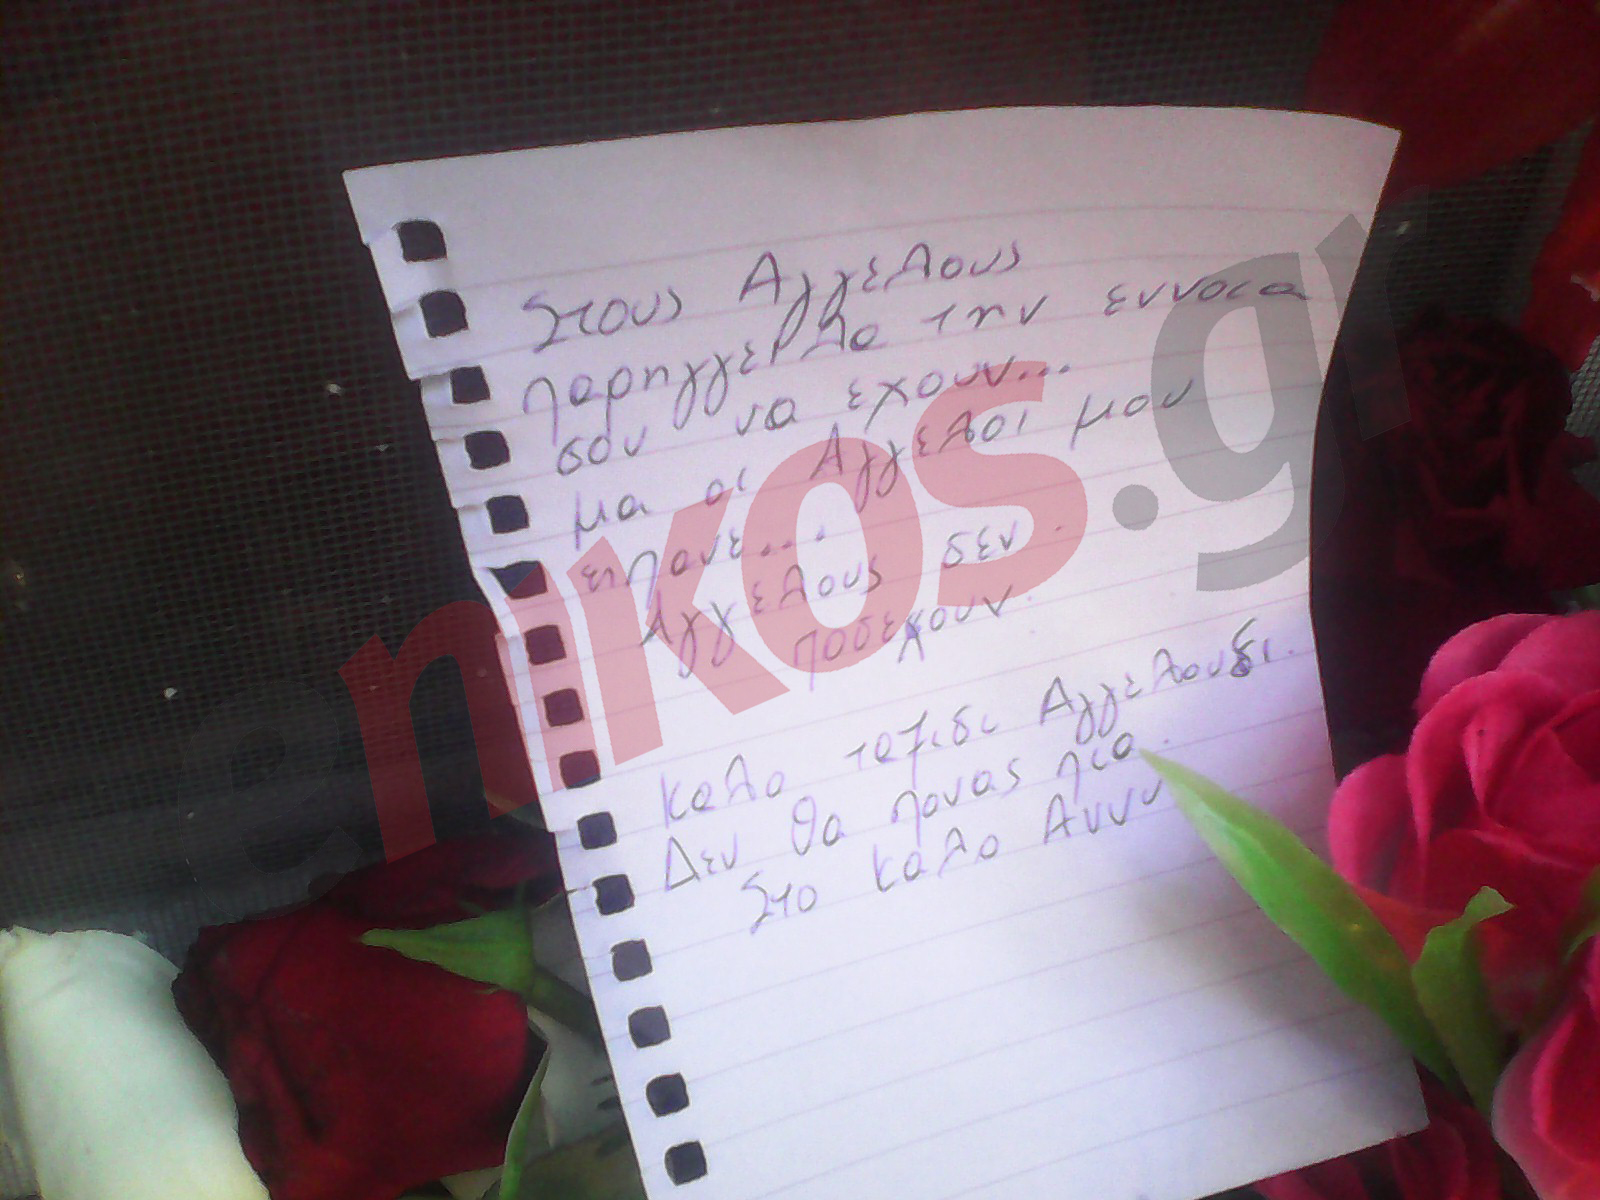 Στους Αγγελους
παρηγγειλα την εννοια
σου να εχουν...
μα οι Αγγελοι μου
ειπανε...
Αγγελους δεν
προσεχουν.
Καλο ταξιδι Αγγελουδι.
Δεν θα πονας πια.
Στο καλο Αννυ
enikos.gr